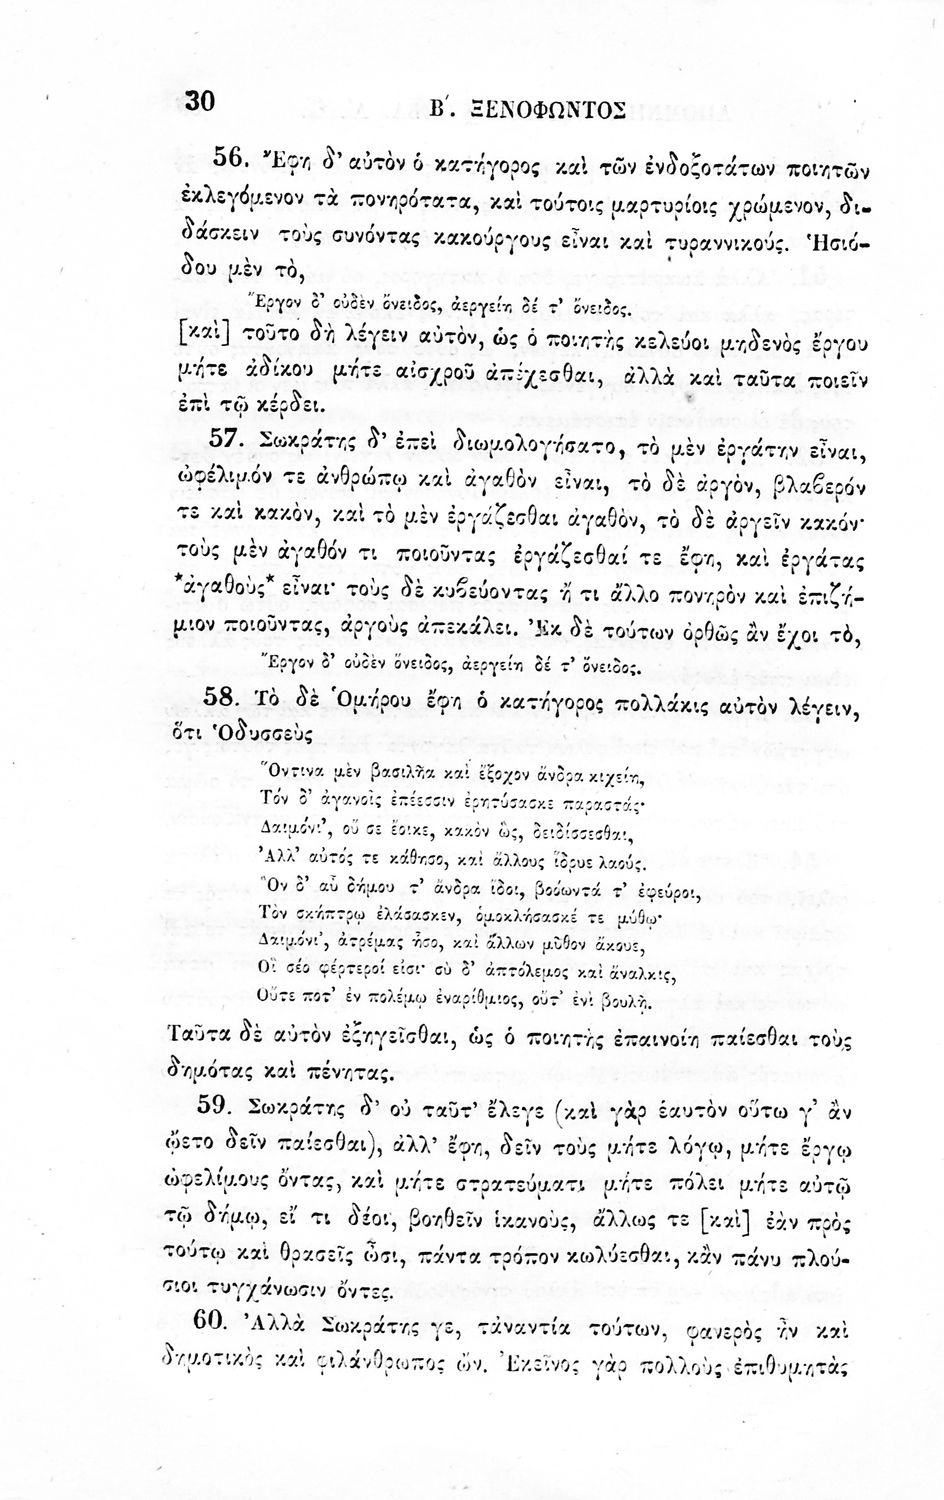 30
Β΄. ΞΕΝΟΦΩΝΤΟΣ
56. Ἔφη δ' αὐτὸν ὁ κατήγορος καὶ τῶν ἐνδοξοτάτων ποιητῶν
ἐκλεγόμενον τὰ πονηρότατα, καὶ τούτοις μαρτυρίοις χρώμενον, δι-
δάσκειν τοὺς συνόντας κακούργους εἶναι καὶ τυραννικούς. Ἡσιό-
δου μὲν τὸ,
Ἔργον δ' οὐδὲν ὄνειδος, ἀεργείη δέ τ' ὄνειδος.
[καὶ] τοῦτο δὴ λέγειν αὐτὸν, ὡς ὁ ποιητὴς κελεύοι μηδενὸς ἔργου
μήτε ἀδίκου μήτε αἰσχροῦ ἀπέχεσθαι, ἀλλὰ καὶ ταῦτα ποιεῖν
ἐπὶ τῷ κέρδει.
57. Σωκράτης δ' ἐπεὶ διωμολογήσατο, τὸ μὲν ἐργάτην εἶναι,
ὠφέλιμόν τε ἀνθρώπῳ καὶ ἀγαθὸν εἶναι, τὸ δὲ ἀργὸν, βλαϐερόν
τε καὶ κακὸν, καὶ τὸ μὲν ἐργάζεσθαι ἀγαθὸν, τὸ δὲ ἀργεῖν κακόν·
τοὺς μὲν ἀγαθόν τι ποιοῦντας ἐργάζεσθαί τε ἔφη, καὶ ἐργάτας
*ἀγαθοὺς* εἶναι· τοὺς δὲ κυϐεύοντας ἤ τι ἄλλο πονηρὸν καὶ ἐπιζή-
μιον ποιοῦντας, ἀργοὺς ἀπεκάλει. Ἐκ δὲ τούτων ὀρθῶς ἂν ἔχοι τὸ,
Ἔργον δ' οὐδὲν ὄνειδος, ἀεργείη δέ τ' ὄνειδος.
58. Τὸ δὲ Ὁμήρου ἔφη ὁ κατήγορος πολλάκις αὐτὸν λέγειν,
ὅτι Ὀδυσσεὺς
Ὅντινα μὲν βασιλῆα καὶ ἔξοχον ἄνδρα κιχείη,
Τόν δ' ἀγανοῖς ἐπέεσσιν ἐρητύσασκε παραστάς·
Δαιμόνι', οὔ σε ἔοικε, κακὸν ὣς, δειδίσσεσθαι,
Ἀλλ' αὐτός τε κάθησο, καὶ ἄλλους ἵδρυε λαούς.
Ὃν δ' αὖ δήμου τ' ἄνδρα ἴδοι, βοόωντά τ' ἐφεύροι,
Τὸν σκήπτρῳ ἐλάσασκεν, ὁμοκλήσασκέ τε μύθῳ·
Δαιμόνι', ἀτρέμας ἧσο, καὶ ἄλλων μῦθον ἄκουε,
Οἳ σέο φέρτεροί εἰσι· σὺ δ' ἀπτόλεμος καὶ ἄναλκις,
Οὔτε ποτ' ἐν πολέμῳ ἐναρίθμιος, οὔτ' ἐνὶ βουλῇ.
Ταῦτα δὲ αὐτὸν ἐξηγεῖσθαι, ὡς ὁ ποιητὴς ἐπαινοίη παίεσθαι τοὺς
δημότας καὶ πένητας.
59. Σωκράτης δ' οὐ ταῦτ' ἔλεγε (καὶ γὰρ ἑαυτὸν οὕτω γ' ἂν
ᾤετο δεῖν παίεσθαι), ἀλλ' ἔφη, δεῖν τοὺς μήτε λόγῳ, μήτε ἔργῳ
ὠφελίμους ὄντας, καὶ μήτε στρατεύματι μήτε πόλει μήτε αὐτῷ
τῷ δήμῳ, εἴ τι δέοι, βοηθεῖν ἱκανοὺς, ἄλλως τε [καὶ] ἐὰν πρὸς
τούτῳ καὶ θρασεῖς ὦσι, πάντα τρόπον κωλύεσθαι, κἂν πάνυ πλού-
σιοι τυγχάνωσιν ὄντες.
60. Ἀλλὰ Σωκράτης γε, τἀναντία τούτων, φανερὸς ἦν καὶ
δημοτικὸς καὶ φιλάνθρωπος ὤν. Ἐκεῖνος γὰρ πολλοὺς ἐπιθυμητὰς